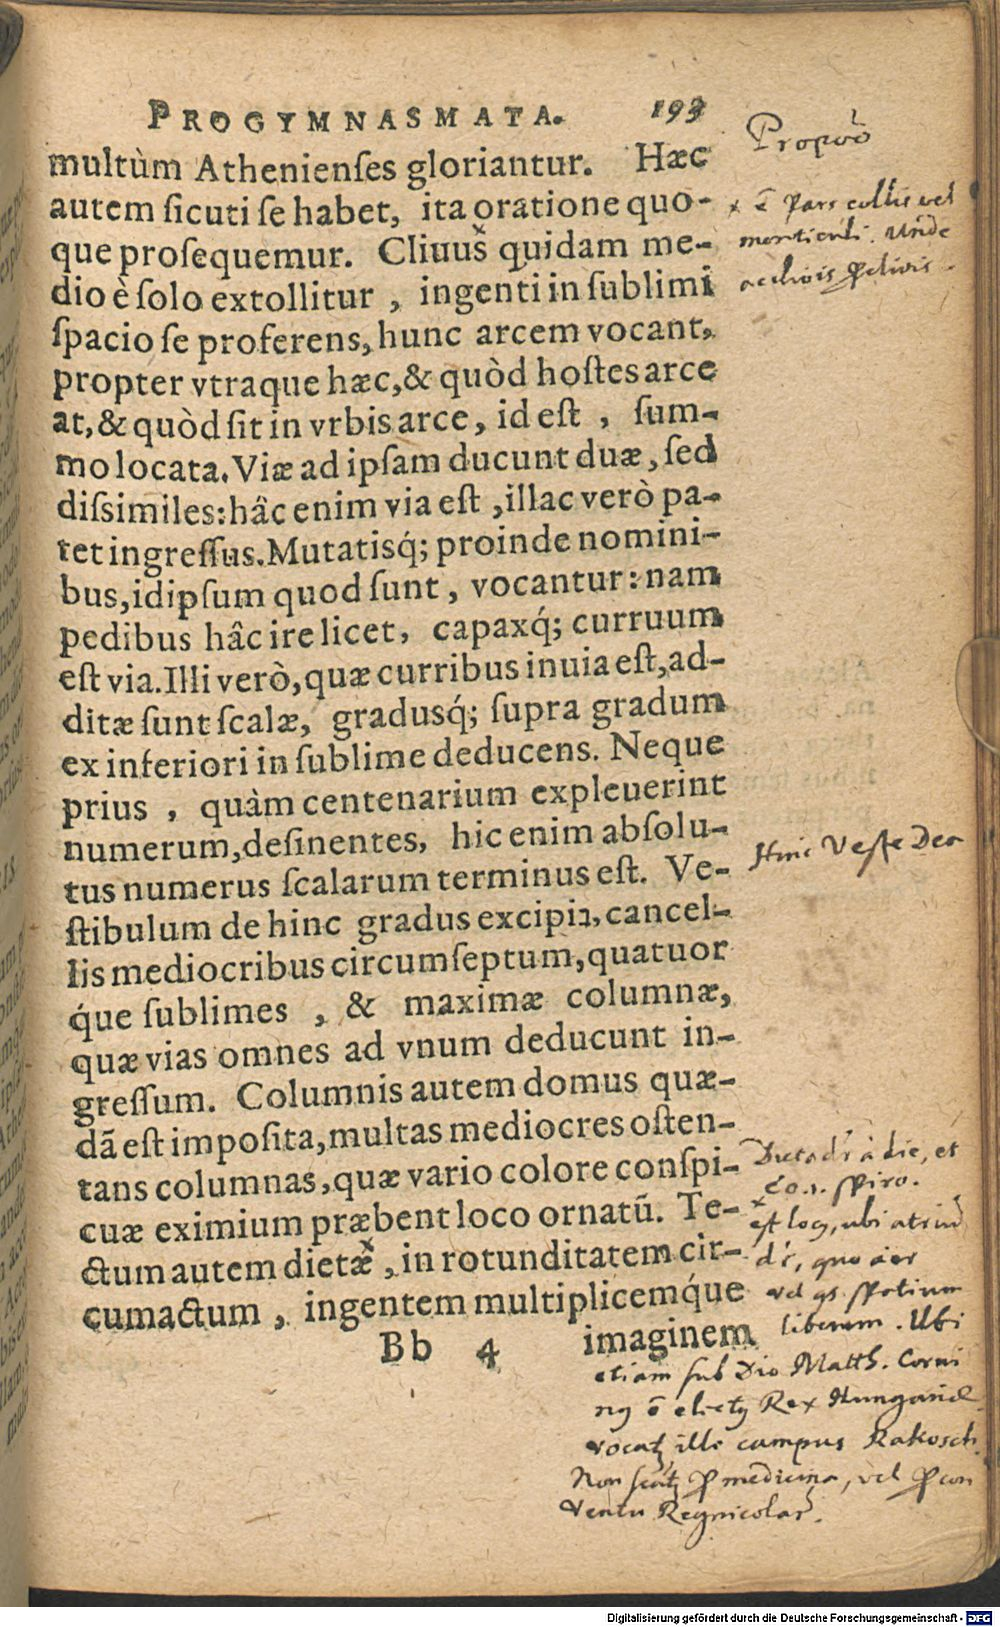 PROGYMNASMATA. 193
multùm Athenienſes gloriantur. Hæc
autem ſicuti ſe habet, ita oratione quo-
que proſequemur. Cliuus quidam me-
dio è ſolo extollitur, ingenti in ſublimi
ſpacio ſe proferens, hunc arcem vocant,
propter vtraque hæc, & quòd hoſtes arce
at, & quòd ſit in vrbis arce, id eſt, ſum-
mo locata. Viæ ad ipſam ducunt duæ, ſed
diſsimiles: hâc enim via eſt, illac verò pa-
tet ingreſſus. Mutatisq́; proinde nomini-
bus, idipſum quod ſunt, vocantur: nam
pedibus hâc ire licet, capaxq́; curruum
eſt via. Illi verò, quæ curribus inuia eſt, ad-
ditæ ſunt ſcalæ, gradusq́; ſupra gradum
ex inferiori in ſublime deducens. Neque
prius, quàm centenarium expleuerint
numerum, deſinentes, hic enim abſolu-
tus numerus ſcalarum terminus eſt. Ve-
ſtibulum de hinc gradus excipit, cancel-
lis mediocribus circumſeptum, quatuor
q́ue ſublimes, & maximæ columnæ,
quæ vias omnes ad vnum deducunt in-
greſſum. Columnis autem domus quæ-
dã eſt impoſita, multas mediocres oſten-
tans columnas, quæ vario colore conſpi-
cuæ eximium præbent loco ornatũ. Te-
ctum autem dietæ, in rotunditatem cir-
cumactum, ingentem multiplicemq́ue
Bb 4 imaginem
x ē pars collis vel
monticuli. Unde
acclivis
Dicta à die, et
ſpiro.
ubi atriũ
quo aer
ſpatium
liberum. Ubi
etiam ſub Dio Matth. Corvi
Rex Hungariæ
ille campus Rakosch
medicina, vel
Regnicolar.
Digitalisierung gefördert durch die Deutsche Forschungsgemeinschaft - DFG